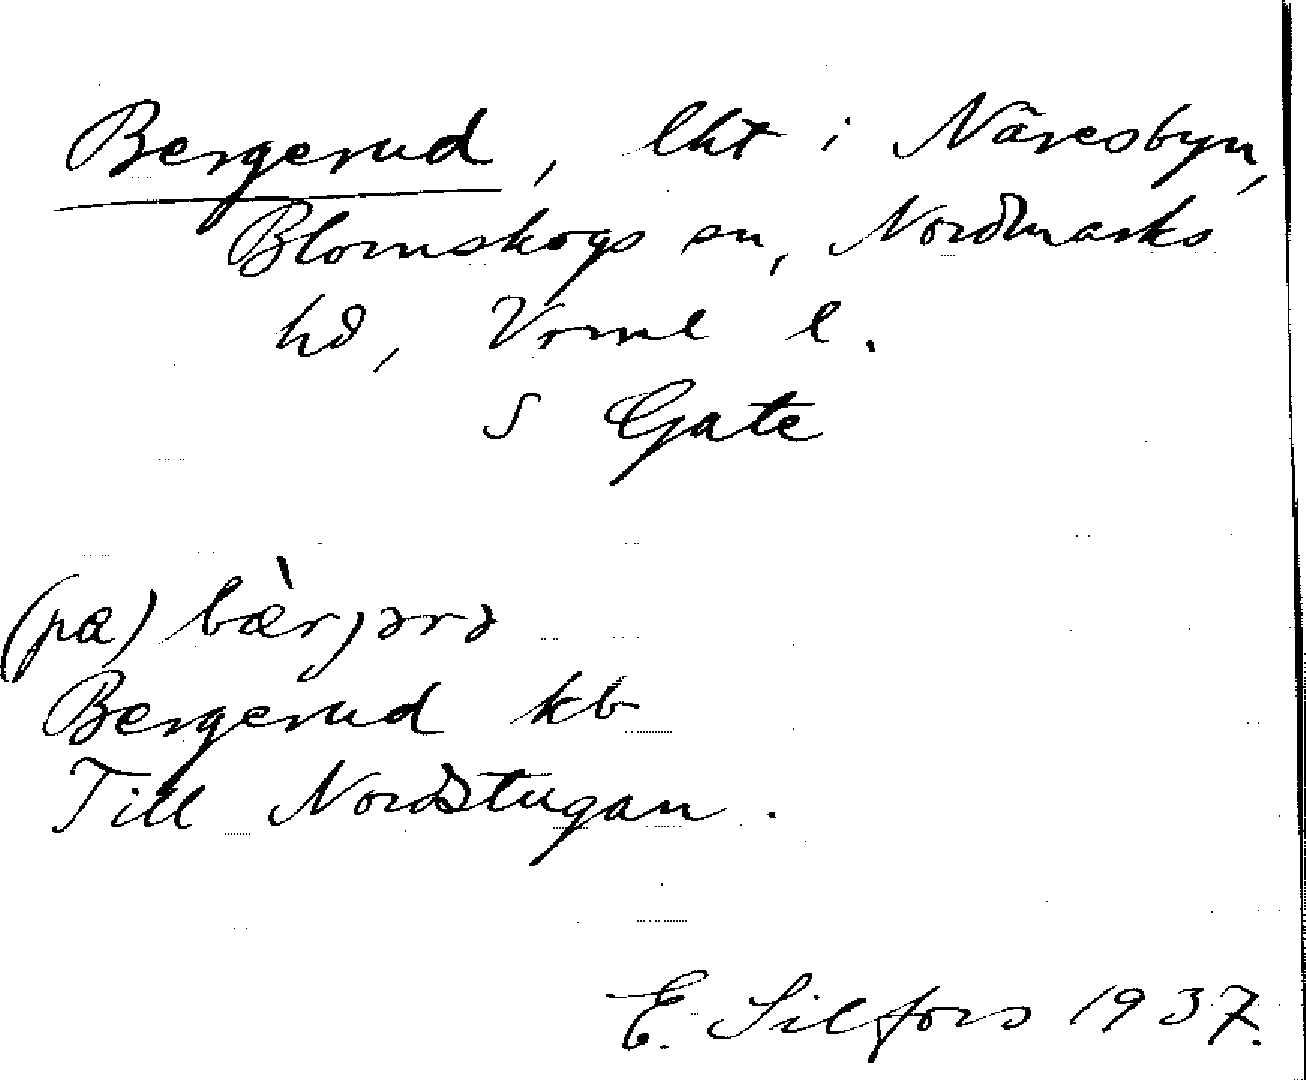 Bergerud, lht i Näresbyn,
Blomskogs sn, Nordmarks
hd, Vrml l.
S Gate
(pa) bæ̀rjərə
Bergerud kb
Till Nordstugan.
E. Silfors 1937.